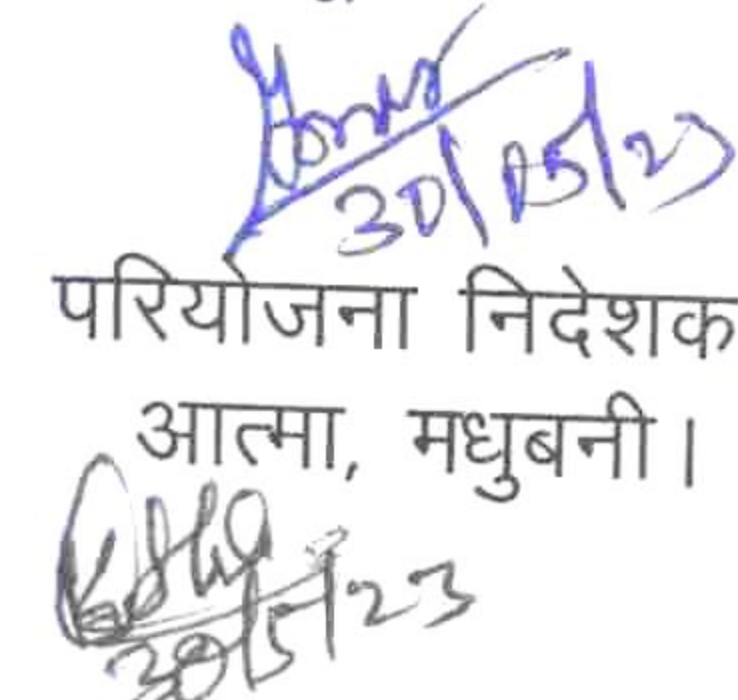 30/05/23
परियोजना निदेशक
आत्मा, मधुबनी।
30/5/23